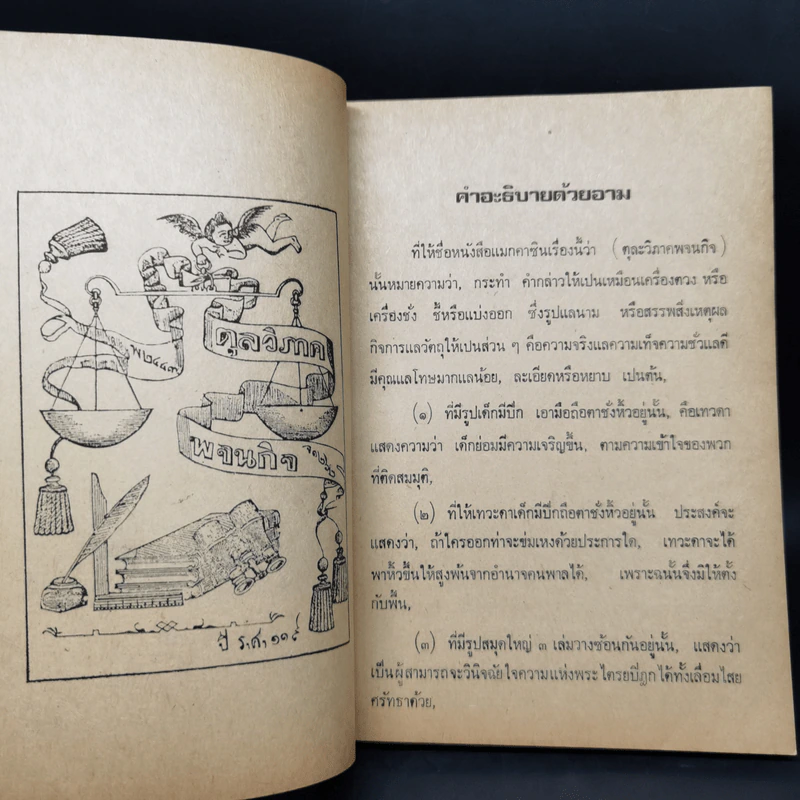 ตุลวิภาค
พ๒๔๔๓
พจนกิจ
ปี ร,ศ,๑๑๙
คำอะธิบายด้วยอาม
ที่ให้ชื่อหนังสือแมกคาซินเรื่องนี้ว่า (ตุละวิภาคพจนกิจ)
นั้นหมายความว่า, กระทำ คำกล่าวให้เปนเหมือนเครื่องตวง หรือ
เครื่องชั่ง ชี้หรือแบ่งออก ซึ่งรูปแลนาม หรือสรรพสิ่งเหตุผล
กิจการแลวัตถุให้เปนส่วน ๆ คือความจริงแลความเท็จความชั่วแลดี
มีคุณแลโทษมากแลน้อย, ละเอียดหรือหยาบ เปนต้น,
(๑) ที่มีรูปเด็กมีปีก เอามือถือตาชั่งหิ้วอยู่นั้น, คือเทวดา
แสดงความว่า เด็กย่อมมีความเจริญขึ้น, ตามความเข้าใจของพวก
ที่คิดสมมุติ,
(๒) ที่ให้เทวะดาเด็กมีปีกถือตาชั่งหิ้วอยู่นั้น ประสงค์จะ
แสดงว่า, ถ้าใครออกท่าจะข่มเหงด้วยประการใด, เทวะดาจะได้
พาหิ้วขึ้นให้สูงพ้นจากอำนาจคนพาลได้, เพราะฉนั้นจึ่งมิให้ตั้ง
กับพื้น,
(๓) ที่มีรูปสมุดใหญ่ ๓ เล่มวางซ้อนกันอยู่นั้น, แสดงว่า
เป็นผู้สามารถจะวินิจฉัยใจความแห่งพระไตรยปิฎกได้ทั้งเลื่อมใสย
ศรัทธาด้วย,